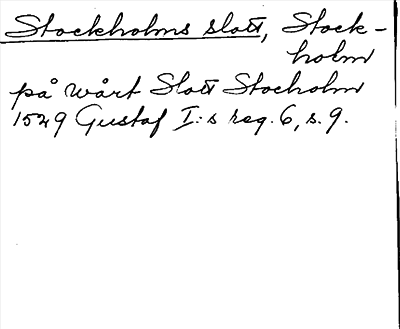 Stockholms slott, Stock-
holm
på wårt Slott Stocholm
1529 Gustaf I:s reg. 6, s. 9.